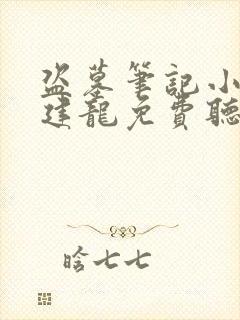 盗墓筆記小
建龍免費聽
晗七七